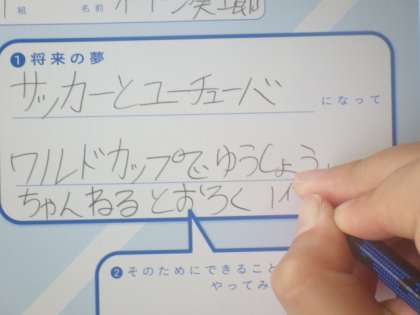 組 名前
❶将来の夢
サッカーとユーチューバ
になって
ワルドカップでゆうしょう、
ちゃんねるとおろく
❷そのためにできること
やってみ